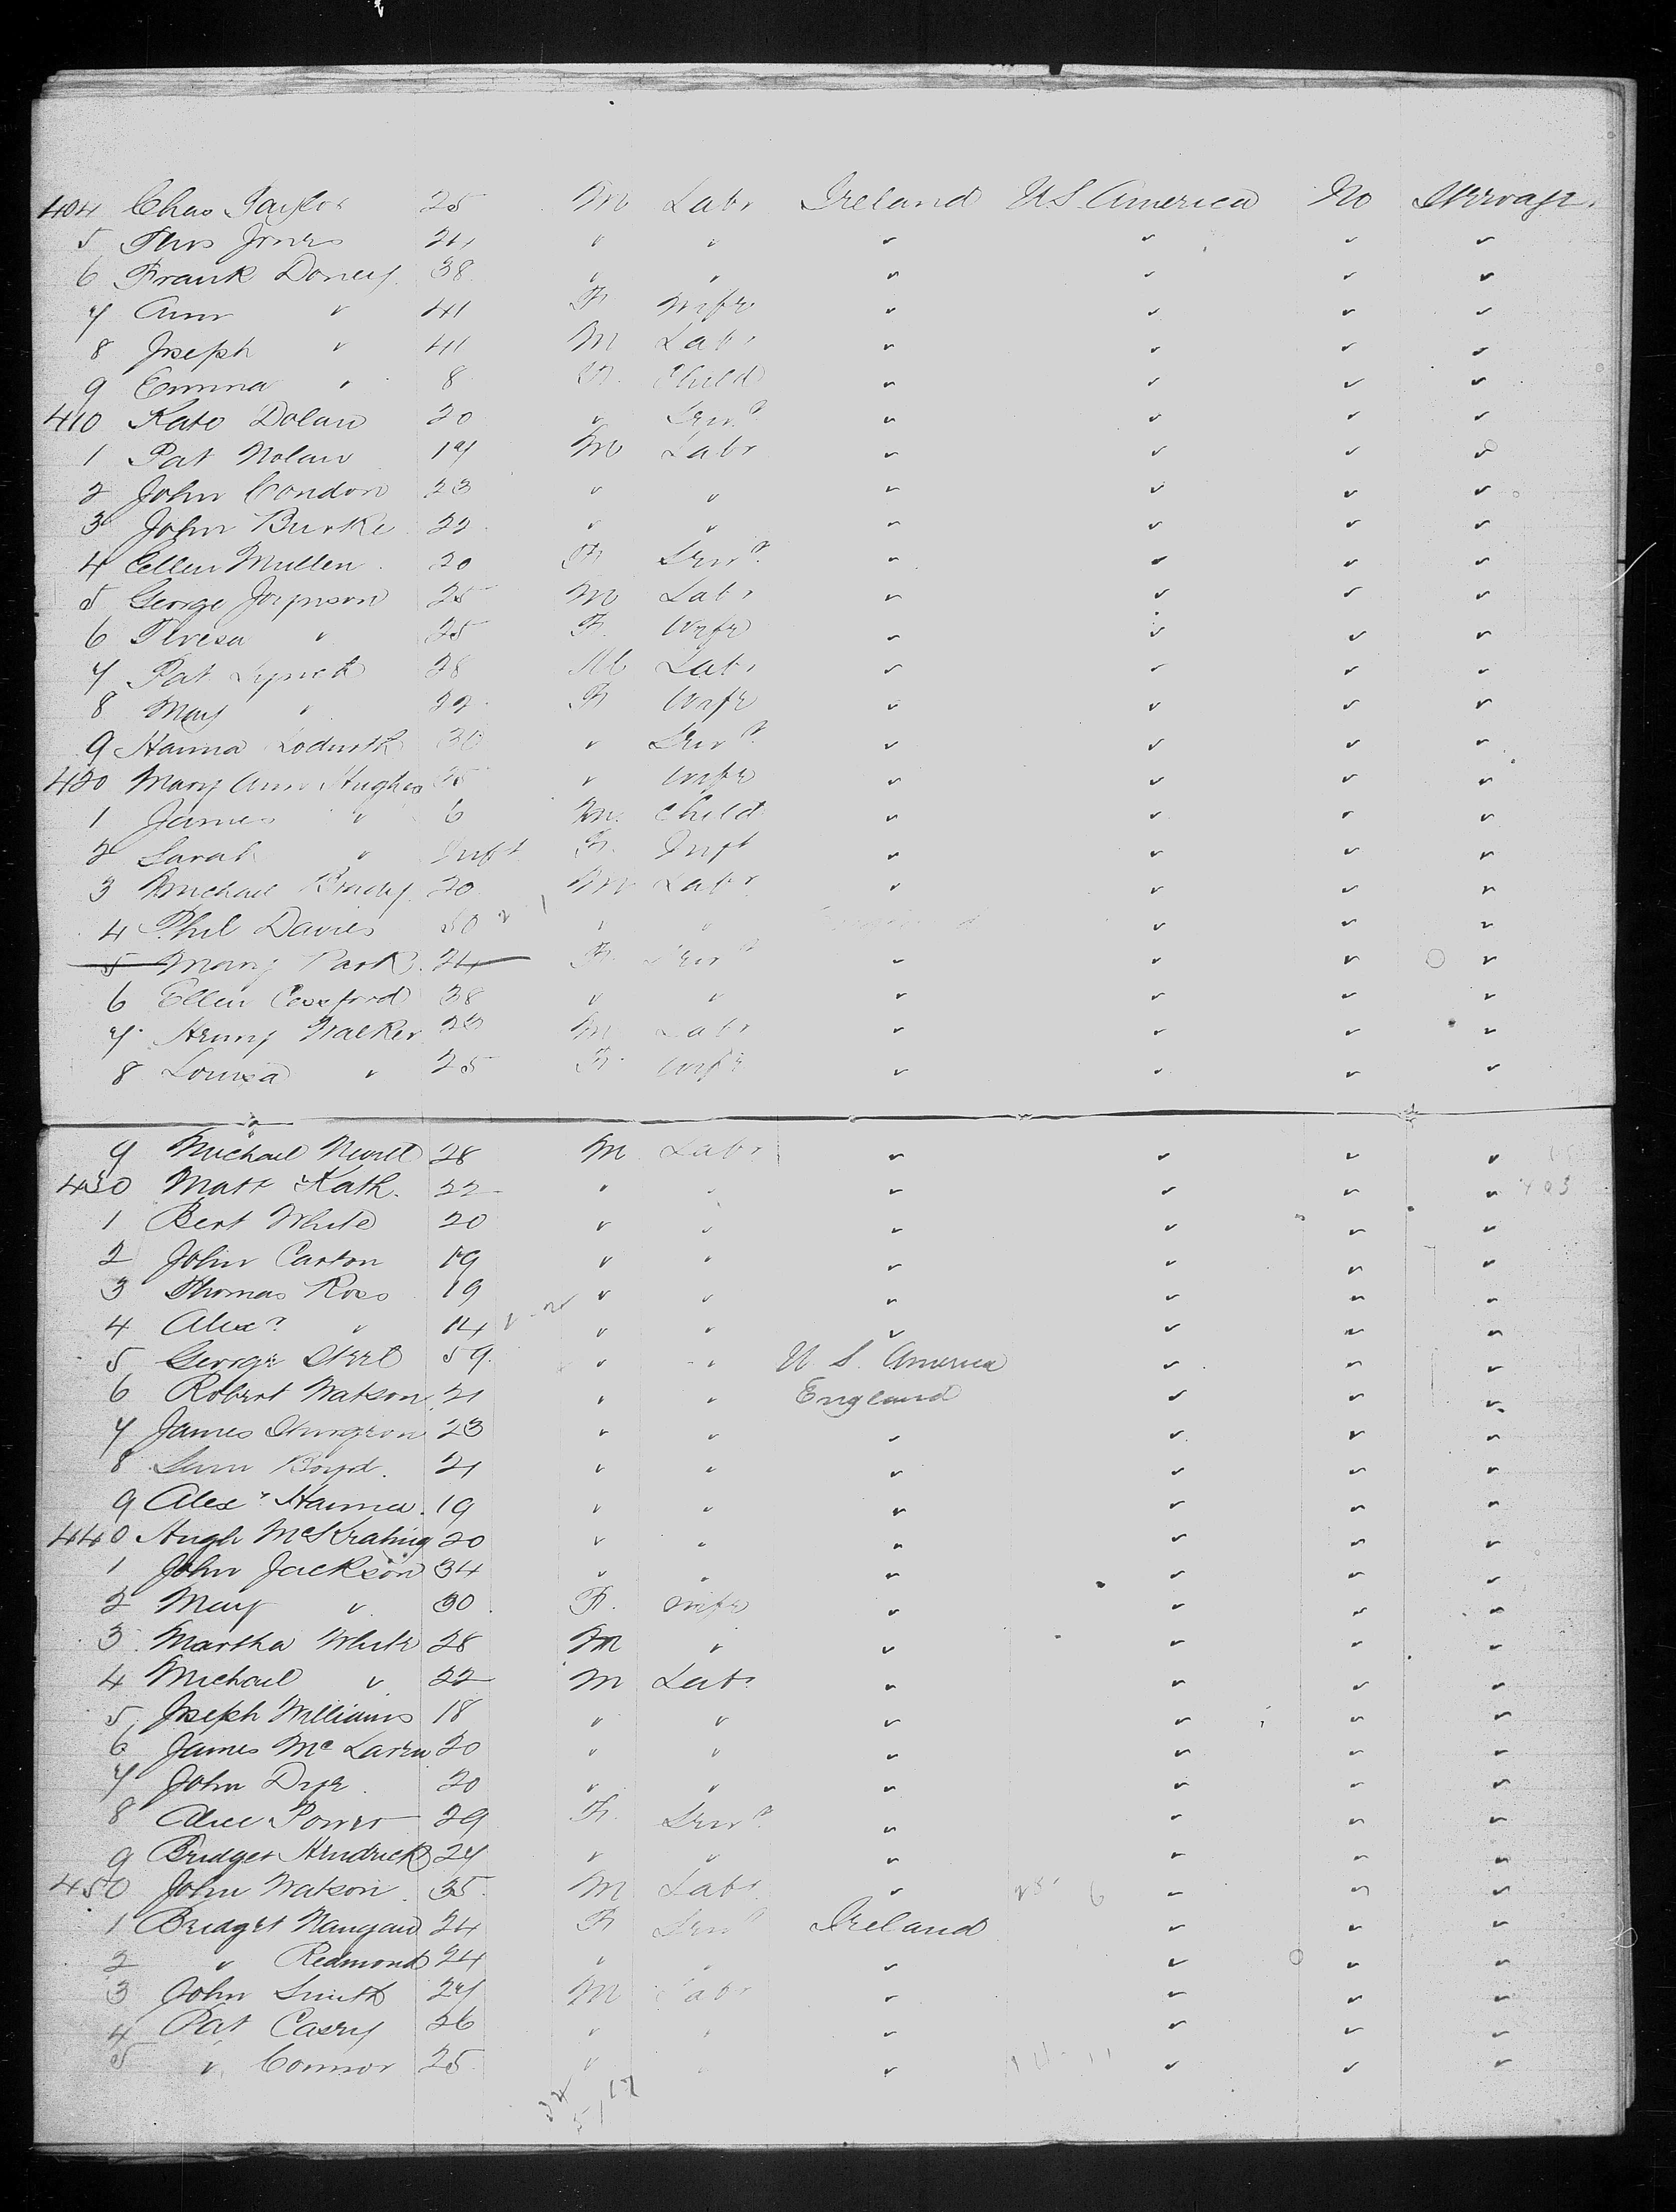 404 Chas Taylor 25 M Labr Ireland U S America No Steerage
5 Thos Jones 24 " " " " " "
6 Frank Doney 38 " " " " " "
7 Ann " 41 F Wife " " " "
8 Joseph " 41 M Labr " " " "
9 Emma " 8 F Child " " " "
410 Kate Dolan 20 " Servt " " " "
1 Pat Nolan 17 M Labr " " " "
2 John Condon 23 " " " " " "
3 John Burke 22 " " " " " "
4 Ellen Mullen 20 F Servt " " " "
5 George Joynson 25 M Labr " " " "
6 Teresa " 25 F Wife " " " "
7 Pat Lynch 28 M Labr " " " "
8 Mary " 22 F Wife " " " "
9 Hanna 30 " Servt " " " "
420 Mary Ann Hughes 25 " Wife " " " "
1 James " 6 M Child " " " "
2 Sarah " Inft F Inft " " " "
3 Michael Brady 20 M Labr " " " "
4 Phil Davies 50 " " " " "
5 Mary Park 24 F Servt " " " "
6 Ellen 38 " " " " " "
7 Henry Walker 28 M Labr " " " "
8 Louisa " 25 F Wife " " " "
9 Michael 28 M Labr " " " "
430 Matt Kath 22 " " " " " "
1 Bert White 20 " " " " " "
2 John Carton 19 " " " " " "
3 Thomas Ross 19 " " " " " "
4 Alexr " 14 " " " " " "
5 George Steel 59 " " U S. America " " "
6 Robert Watson 21 " " England " " "
7 James Sturgeon 23 " " " " " "
8 Saml Boyd 21 " " " " " "
9 Alexr Hanna 19 " " " " " "
440 Hugh 20 " " " " " "
1 John Jackson 34 " " " " " "
2 Mary " 30 F Wife " " " "
3 Martha White 28 M " " " " "
4 Michael " 22 M Labr " " " "
5 Joseph Williams 18 " " " " " "
6 James Mc Laren 20 " " " " " "
7 John Dyer 20 " " " " " "
8 Alice Power 29 F Servt " " " "
9 Bridget Hendrick 27 " " " " " "
450 John Watson 35 M Labr " " " "
1 Bridget Mangan 24 F Servt Ireland " " "
2 " Redmond 24 " " " " " "
3 John Smith 27 M Labr " " " "
4 Pat Casey 26 " " " " " "
5 " Connor 25 " " " " " "